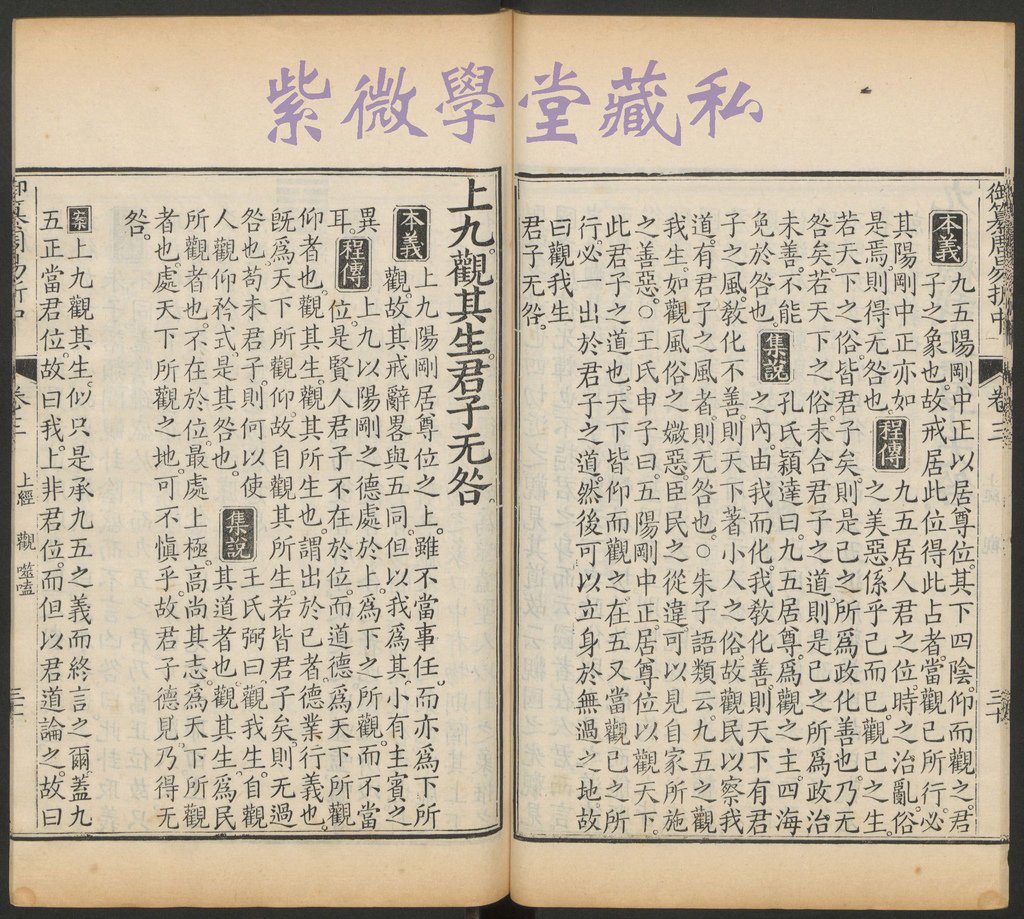 紫微學堂藏私
御纂周易折中
卷三
三十
本義
九五陽剛中正以居尊位。其下四陰。仰而觀之。君
子之象也。故戒居此位得此占者。當觀己所行。必
其陽剛中正亦如
是焉。則得无咎也。
程傳
九五居人君之位。時之治亂。俗
之美惡。係乎己而已。觀己之生。
若天下之俗。皆君子矣。則是己之所爲政化善也。乃无
咎矣。若天下之俗。未合君子之道。則是已之所爲政治
未善。不能
免於咎也。
集說
孔氏穎達曰。九五居尊。爲觀之主。四海
之內。由我而化。我敎化善。則天下有君
子之風。敎化不善。則天下著小人之俗。故觀民以察我
道。有君子之風者。則无咎也。○朱子語類云。九五之觀
我生。如觀風俗之媺惡。臣民之從違。可以見自家所施
之善惡。○王氏申子曰。五陽剛中正。居尊位以觀天下。
此君子之道也。天下皆仰而觀之。在五又當觀已之所
行。必一出於君子之道。然後可以立身於無過之地。故
曰觀我生。
君子无咎。
上九。觀其生。君子无咎。
本義
上九陽剛居尊位之上。雖不當事任。而亦爲下所
觀。故其戒辭畧與五同。但以我爲其。小有主賓之
異
耳。
程傳
上九以陽剛之德處於上。爲下之所觀。而不當
位。是賢人君子不在於位。而道德爲天下所觀
仰者也。觀其生。觀其所生也。謂出於已者。德業行義也。
旣爲天下所觀仰。故自觀其所生。若皆君子矣。則无過
咎也。苟未君子。則何以使
人觀仰矜式。是其咎也。
集說
王氏弼曰。觀我生。自觀
其道者也。觀其生。爲民
所觀者也。不在於位。最處上極。高尚其志。爲天下所觀
者也。處天下所觀之地。可不愼乎。故君子德見。乃得无
咎。
案
上九觀其生。似只是承九五之義而終言之爾。蓋九
五正當君位。故曰我。上非君位。而但以君道論之。故曰
卷三
上經
觀
噬嗑
三十